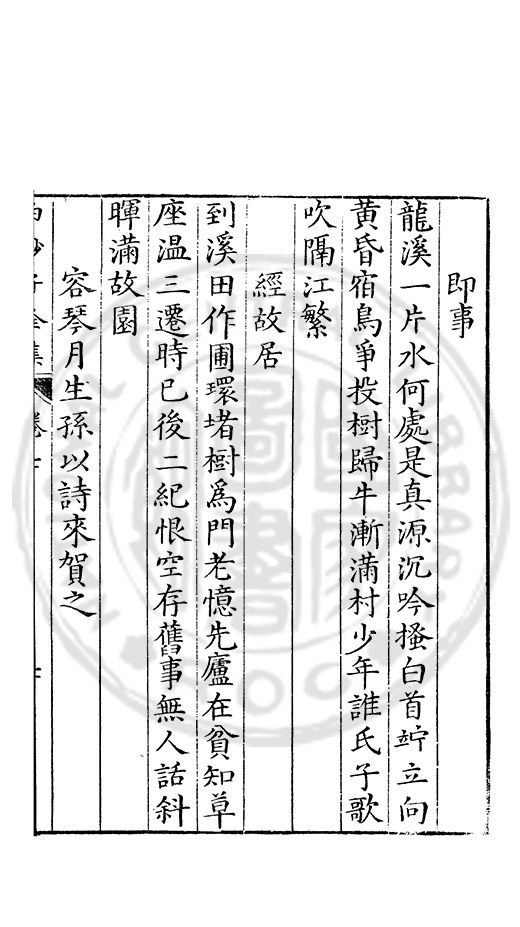 即事
龍溪一片水何處是真源沉吟搔白首竚立向
黃昏宿鳥爭投樹歸牛漸滿村少年誰氏子歌
吹隔江繁
經故居
到溪田作圃環堵樹為門老憶先廬在貧知草
座溫三遷時已後二紀恨空存舊事無人話斜
暉滿故園
容琴月生孫以詩來賀之